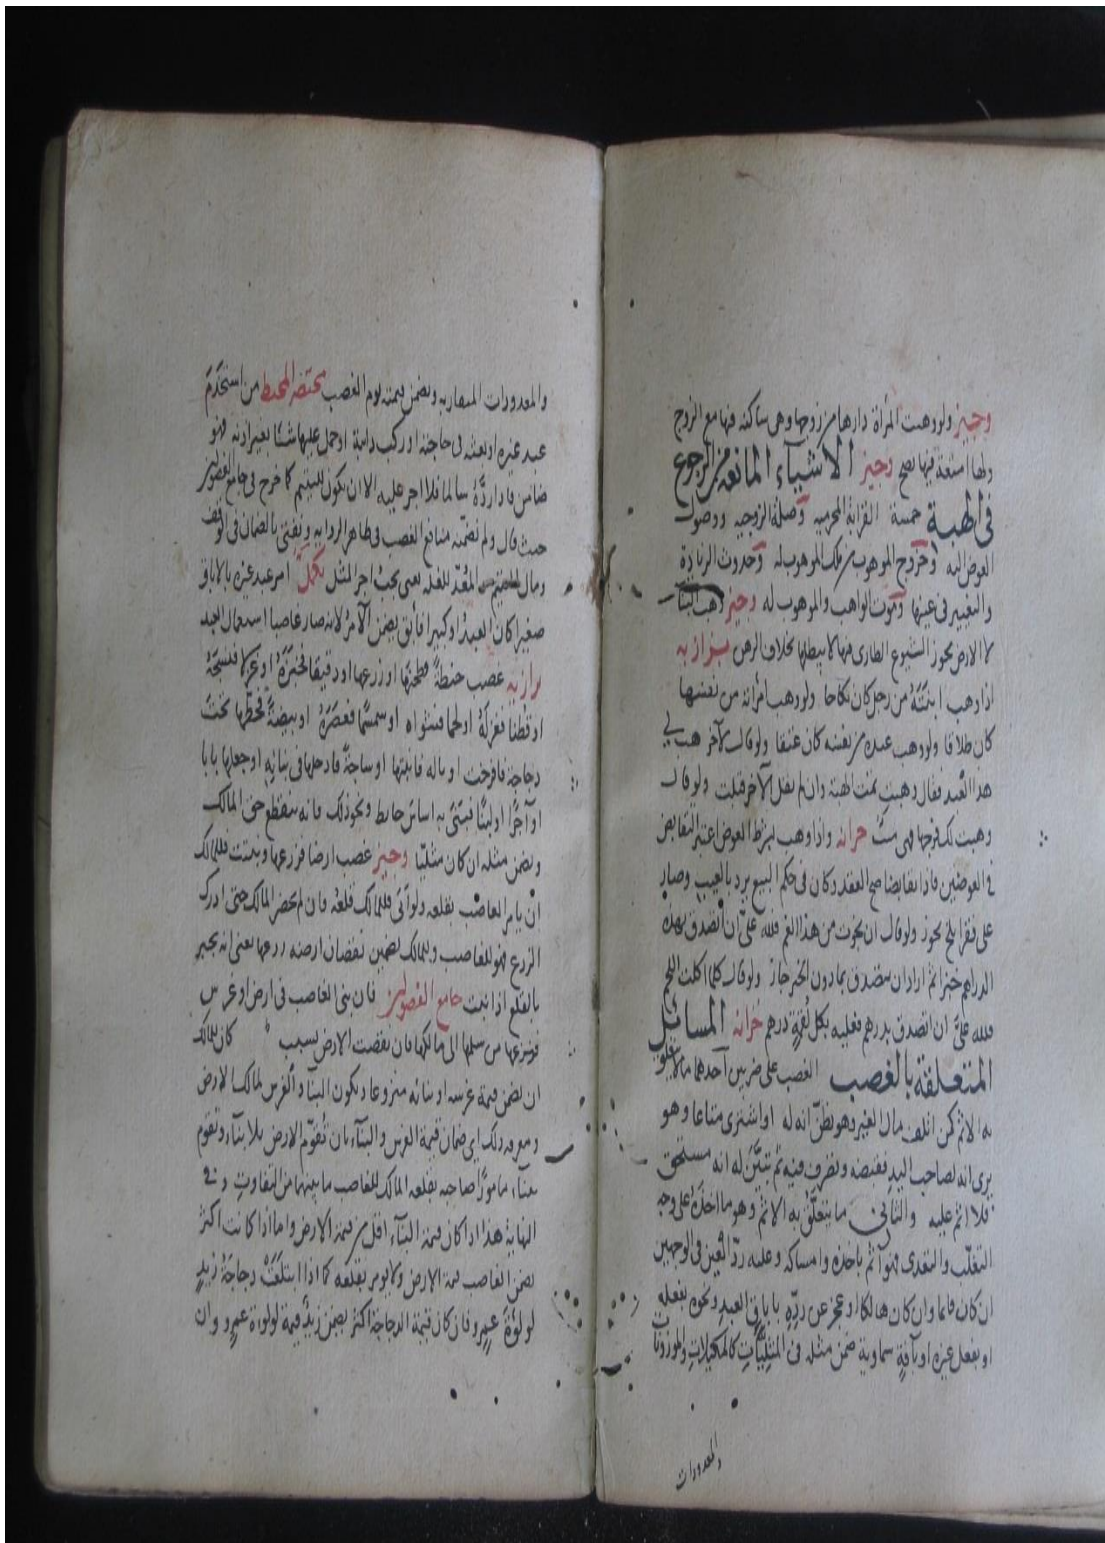 وجيز ولو وهبت المرأة دارها من زوجها وهى ساكنة فيها مع الزوج
ولها امتعة فيها يصح وجيز الاشياء المانعة من الرجوع
فى الهبة خمسة القرابة المحرمية وصلة الزوجية ووصول
العوض اليه وخروج الموهوب من ملك الموهوب له وحدوث الزيادة
والتغيير فى عينها وموت الواهب والموهوب له وجيز وهب بناء
لا الارض يجوز الشيوع الطارى فيها لا يبطلها بخلاف الرهن بزازيه
اذا وهب ابنته من رجل كان نكاحا ولو وهب امرأته من نفسها
كان طلاقا ولو وهب عبده من نفسه كان عتقا ولو قال لآخر هب لى
هذا العبد فقال وهبت تمت الهبة وان لم يقل الآخر قبلت ولو قال
وهبت لك فرجها فهى خزانه واذا وهب بشرط العوض اعتبر التقابض
فى العوضين فاذا تقابضا صح العقد وكان فى حكم البيع يرد بالعيب وصار
على فقراء بلخ يجوز ولو قال ان نجوت من هذا الغم فلله علىّ ان اتصدق بهذه
الدراهم خبزا ثم اراد ان يتصدق بها دون الخبز جاز ولو قال كلما اكلت اللحم
فلله علىّ ان اتصدق بدرهم فعليه بكل لقمة درهم خزانه المسائل
المتعلقة بالغصب الغصب على ضربين احدهما ما لا يتعلق
به الاثم كمن اتلف مال الغير وهو يظنّ انه له او اشترى متاعا وهو
يرى انه لصاحب اليد فقبضه وتصرف فيه ثم تبيّن له انه مستحق
فلا اثم عليه والثانى ما يتعلّق به الاثم وهو ما اخذه على وجه
التغلّب والتعدى فهو آثم باخذه وامساكه وعليه ردّ العين فى الوجهين
ان كان قائما وان كان هالكا او عجز عن ردّه باباق العبد ونحوه بفعله
او بفعل غيره او بآفة سماوية ضمن مثله فى المثليّات كالمكيلات والموزونات
والمعدودات
والمعدودات المتقاربه ويضمن قيمته يوم الغصب مختصر المحيط من استخدم
عبد غيره او بعثه فى حاجته او ركب دابة او حمل عليها شيئا بغير اذنه فهو
ضامن فاذا ردّه سالما فلا اجر عليه الا ان يكون لليتيم كما خرج فى
حيث قال ولم نضمّنه منافع الغصب فى ظاهر الرواية ويفتى بالضمان فى الوقف
ومال اليتيم المعدّ للغلة يعنى يجب اجر المثل امر عبد غيره بالاباق
صغيرا كان العبد او كبيرا فابق يضمن الآمر لانه صار غاصبا باستعمال العبد
بزازيه غصب حنطة فطحنها او زرعها او دقيقا فخبزه او غزلا فنسجه
او قطنا فغزله او لحما فشواه او سمسما فعصره او بيضة فحضنها تحت
دجاجة فافرخت او ساجة فادخلها فى بنائه او جعلها بابا
او آجرّا او لبنا فبنى به اساس حائط ونحو ذلك فانه ينقطع حق المالك
ويضمن مثله ان كان مثليّا وجيز غصب ارضا فزرعها ونبتت فللمالك
ان يأمر الغاصب بقلعه ولو ابى فللمالك قلعه فان لم يحضر المالك حتى ادرك
الزرع فهو للغاصب وللمالك تضمين نقصان ارضه زرعها يعنى انه يجبر
بالقلع اذا نبت جامع الفصولين فان بنى الغاصب فى ارض او غرس
فنزعها من سلمها الى مالكها فان نقصت الارض بسبب كان للمالك
ان يضمن قيمة غرسه او بنائه منزوعا ويكون البناء والغرس لمالك الارض
ومعرفة ذلك اى ضمان قيمة الغرس والبناء بان تقوّم الارض بلا بناء وتقوم
ببناء مأمورا صاحبه بقلعه المالك للغاصب ما بينهما من التفاوت وفى
النهاية هذا اذا كان قيمة البناء اقل من قيمة الارض واما اذا كانت اكثر
يضمن الغاصب قيمة الارض ولا يؤمر بقلعه كما اذا ابتلعت دجاجة زيد
لولؤة عمرو فان كان قيمة الدجاجة اكثر يضمن زيد قيمة لولوة عمرو وان